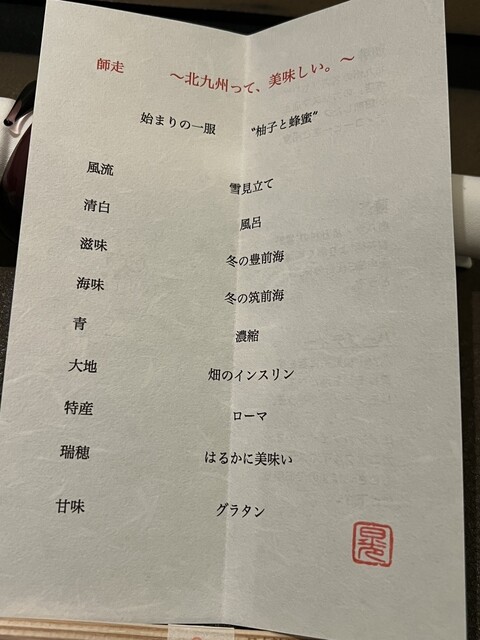 師走 ～北九州って、美味しい。～
始まりの一服 “柚子と蜂蜜”
風流 雪見立て
清白 風呂
滋味 冬の豊前海
海味 冬の筑前海
青 濃縮
大地 畑のインスリン
特産 ローマ
瑞穂 はるかに美味い
甘味 グラタン